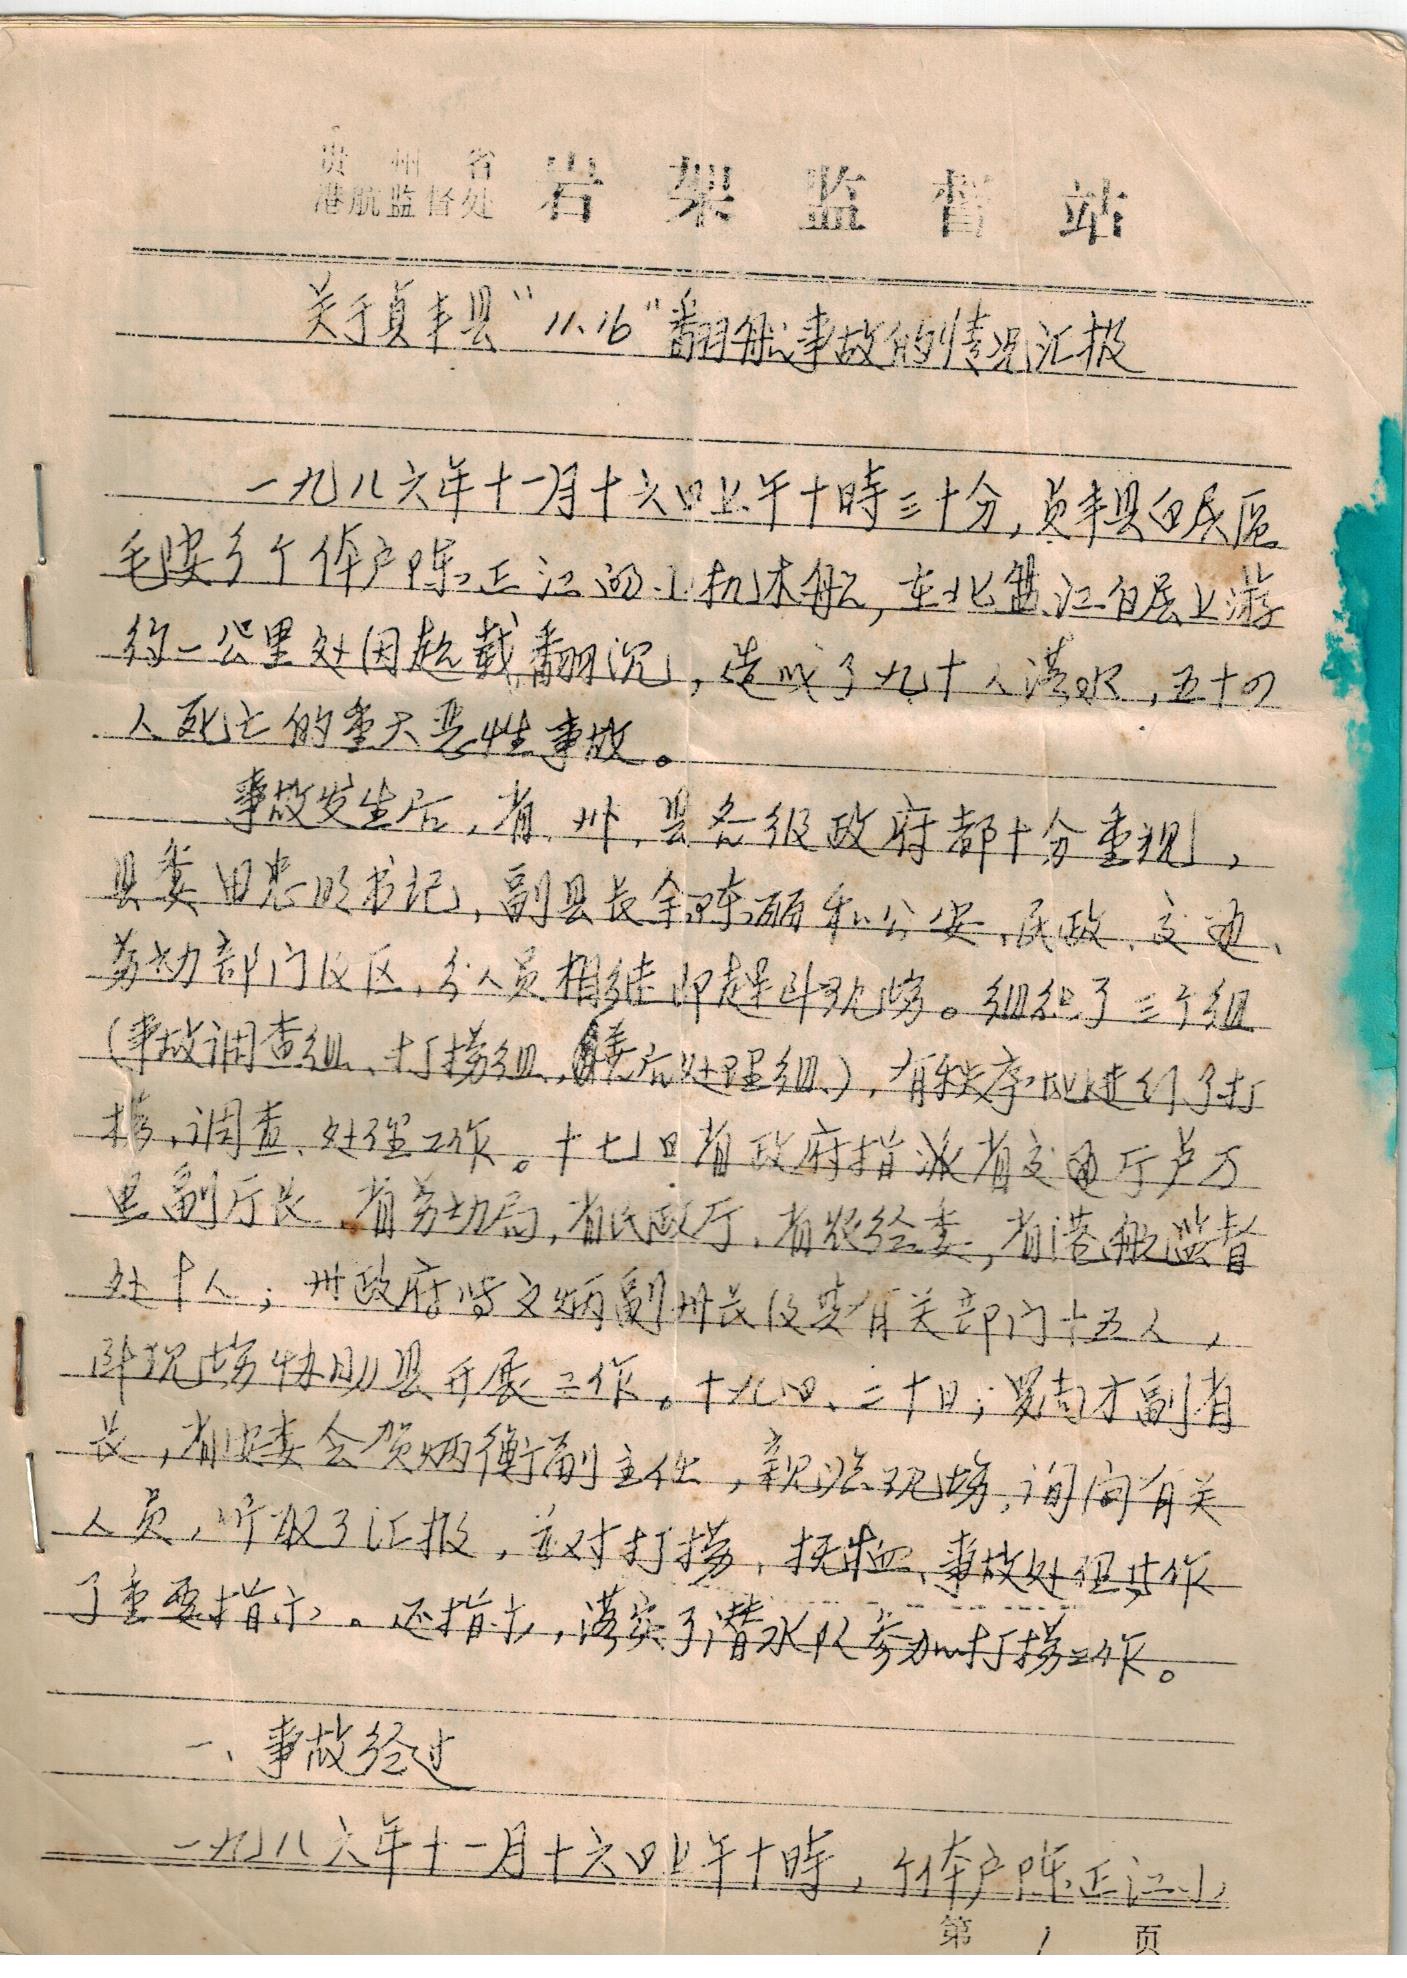 贵州省
港航监督处 岩架监督站
关于贞丰县"11.16"翻船事故的情况汇报
一九八六年十一月十六日上午十时三十分,贞丰县白层区
毛安乡个体户陈正江的小机木船,在北盘江白层上游
约一公里处因超载翻沉,造成了九十人落水,五十四
人死亡的重大恶性事故。
事故发生后,省、州、县各级政府都十分重视,
县委田忠明书记,副县长余陈丽和公安、民政、交通、
劳动部门及区、乡人员相继即赶到现场。组织了三个组
(事故调查组、打捞组、善后处理组),有秩序地进行了打
捞、调查、处理工作。十七日省政府指派省交通厅卢万
里副厅长、省劳动局,省民政厅、省农经委,省港航监督
处十人;州政府 文炳副州长及其有关部门十五人,
到现场协助县开展工作。十九日、二十日;罗尚才副省
长,省安委会贺炳衡副主任,亲临现场,询问有关
人员,听取了汇报,并对打捞、抚恤、事故处理等作
了重要指示。还指示,落实了潜水队参加打捞工作。
一、事故经过
一九八六年十一月十六日上午十时,个体户陈正江小
第 1 页